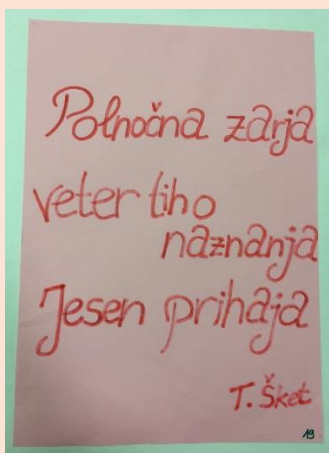 Polnočna zarja
veter tiho
naznanja
Jesen prihaja
T. Šket
19